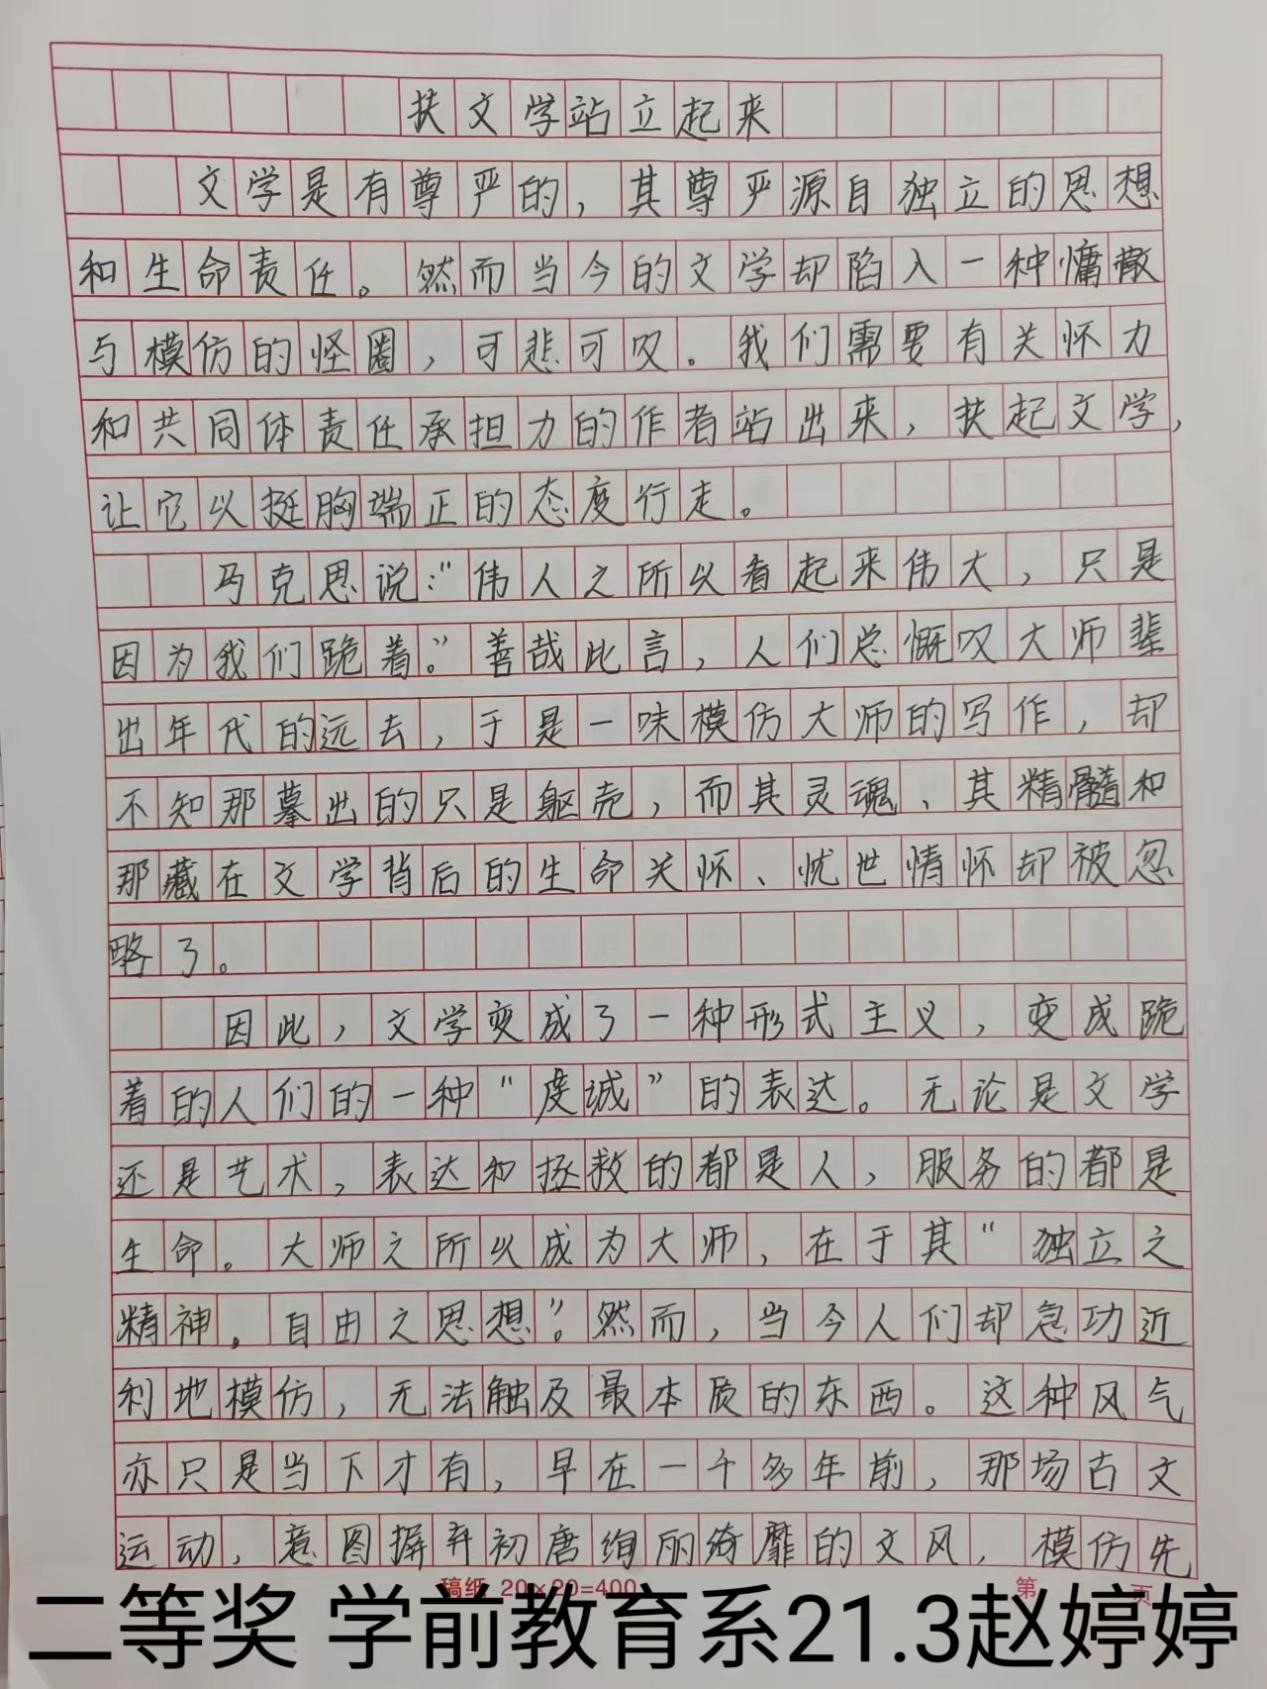 扶文学站立起来
文学是有尊严的，其尊严源自独立的思想
和生命责任。然而当今的文学却陷入一种慵散
与模仿的怪圈，可悲可叹。我们需要有关怀力
和共同体责任承担力的作者站出来，扶起文学，
让它以挺胸端正的态度行走。
马克思说：“伟人之所以看起来伟大，只是
因为我们跪着。”善哉此言，人们总慨叹大师辈
出年代的远去，于是一味模仿大师的写作，却
不知那摹出的只是躯壳，而其灵魂、其精髓和
那藏在文学背后的生命关怀、忧世情怀却被忽
略了。
因此，文学变成了一种形式主义，变成跪
着的人们的一种“虔诚”的表达。无论是文学
还是艺术，表达和拯救的都是人，服务的都是
生命。大师之所以成为大师，在于其“独立之
精神，自由之思想”。然而，当今人们却急功近
利地模仿，无法触及最本质的东西。这种风气
亦只是当下才有，早在一千多年前，那场古文
运动，意图摒弃初唐绚丽绮靡的文风，模仿先
稿纸 20×20=400
第 页
二等奖 学前教育系21.3赵婷婷